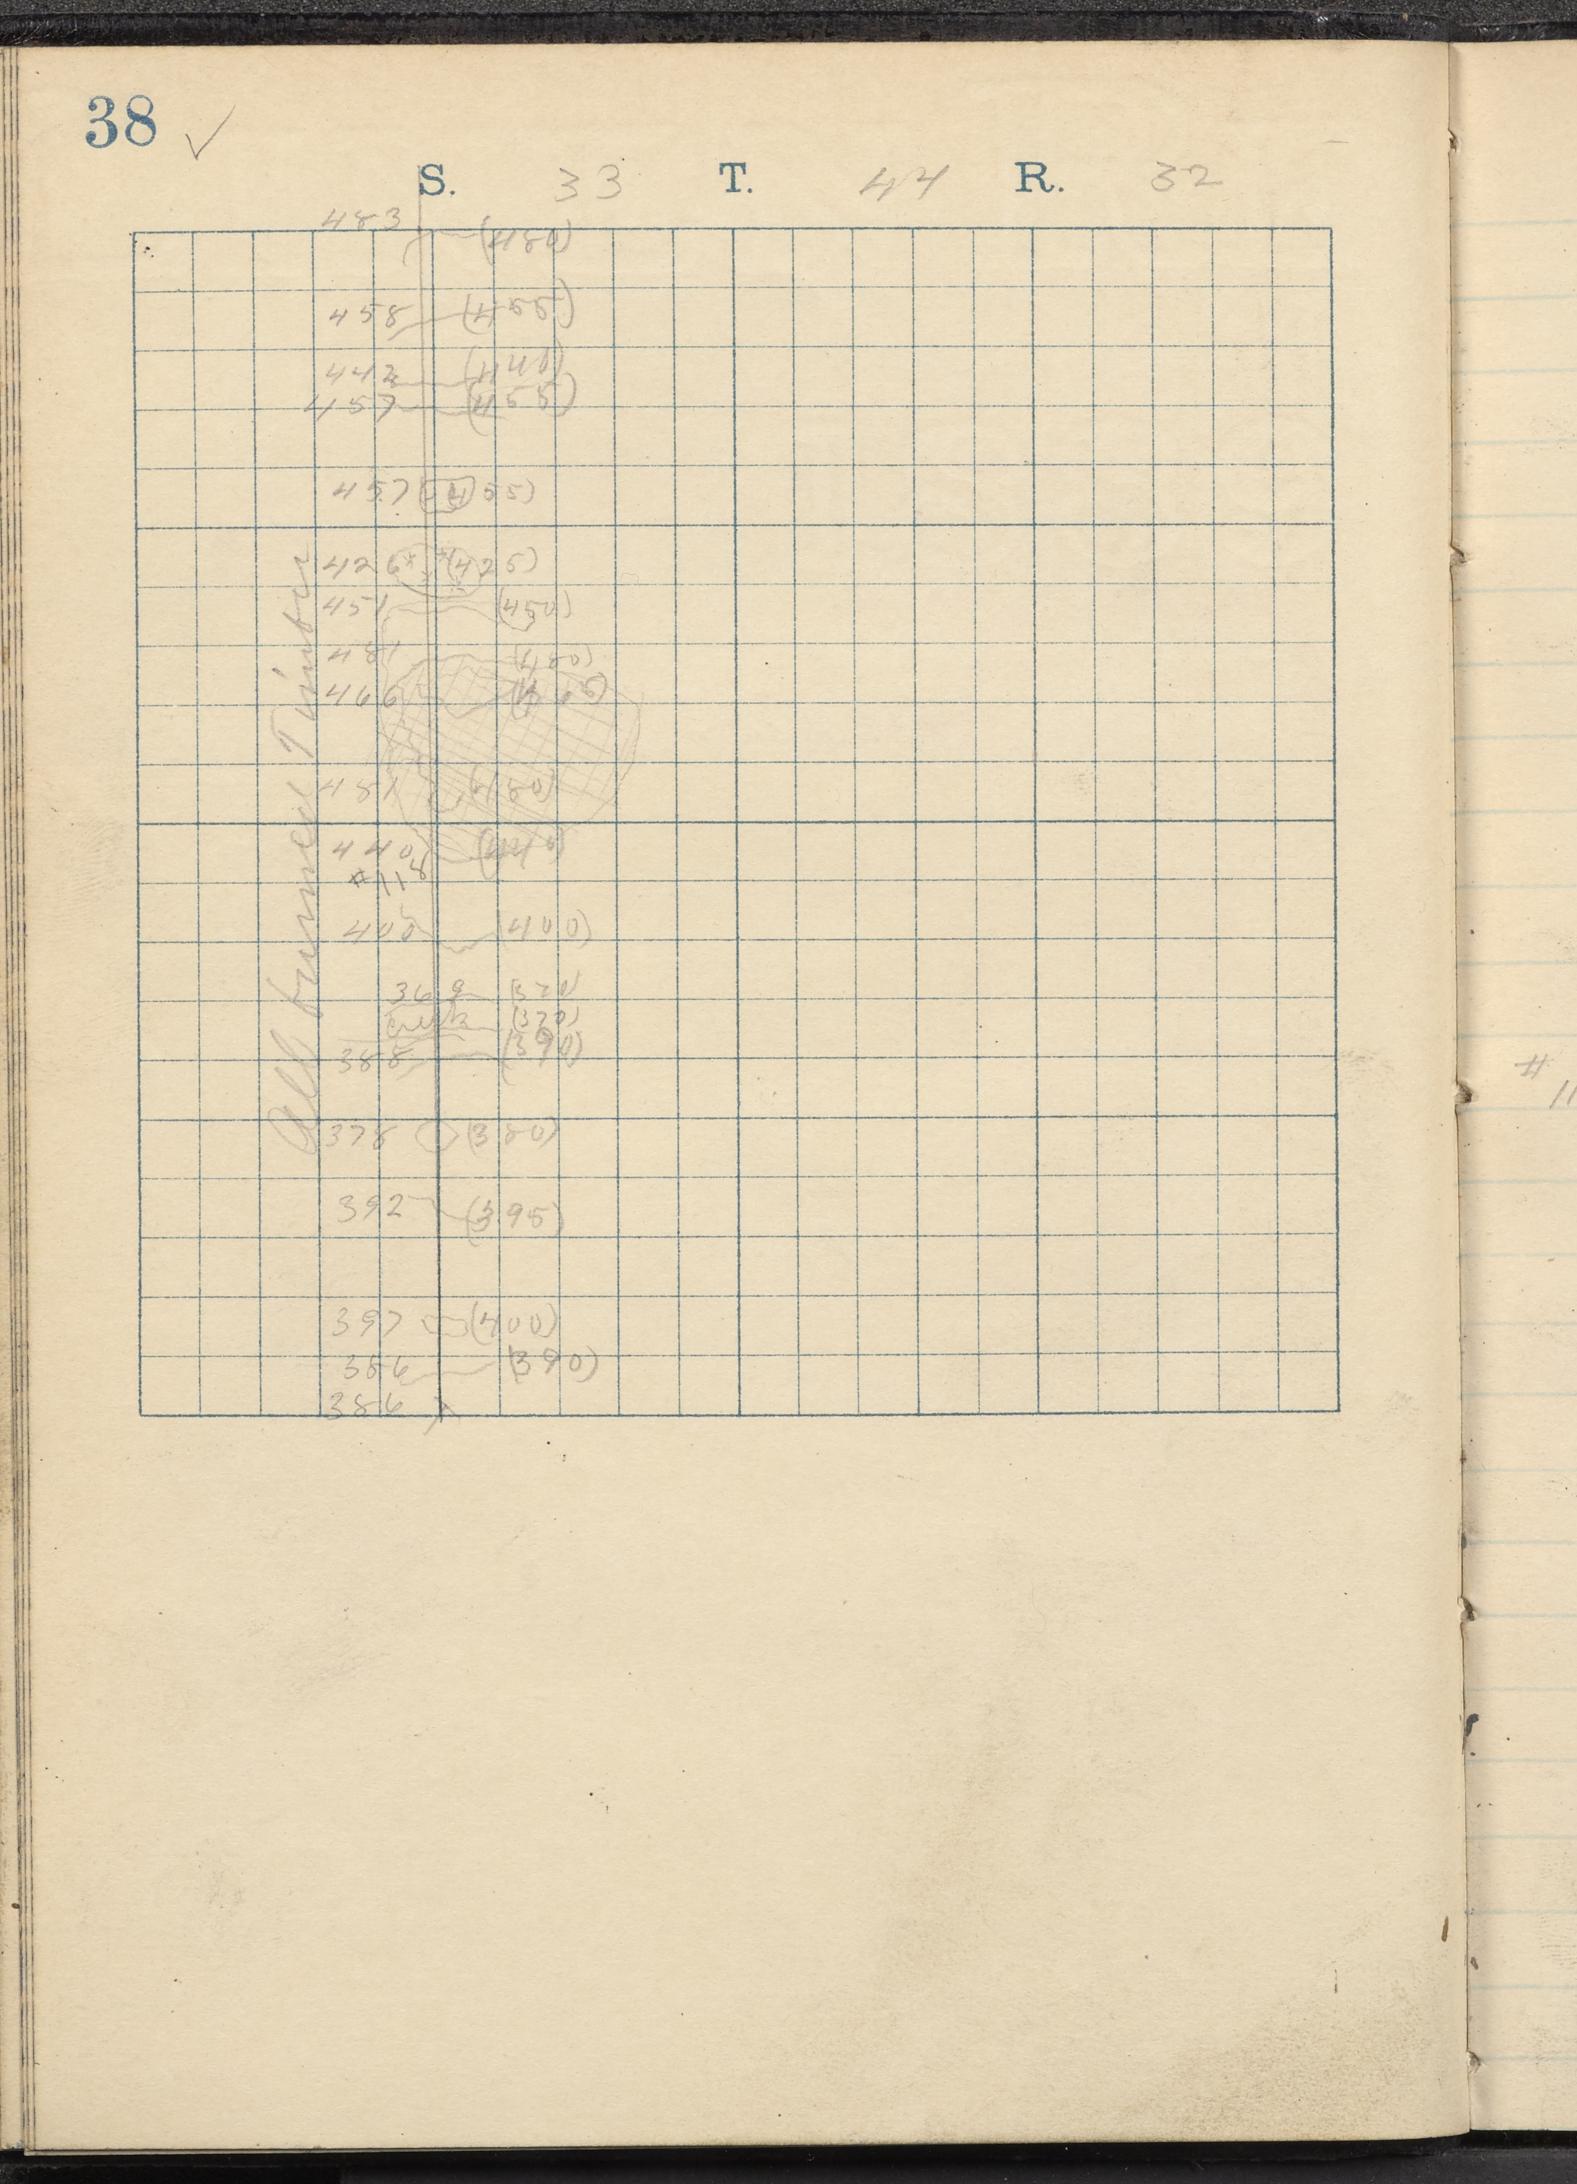 38 ✓
S. 33 T. 44 R. 32
483 (480)
458 (455)
442 (440)
457 (455)
457 (455)
426 (425)
451 (450)
481 (480)
466
481 (480)
440 (440)
#118
400 (400)
369 (370)
creek (370)
388 (390)
378 (380)
392 (395)
397 (400)
386 (390)
386
All burned Timber
#
11